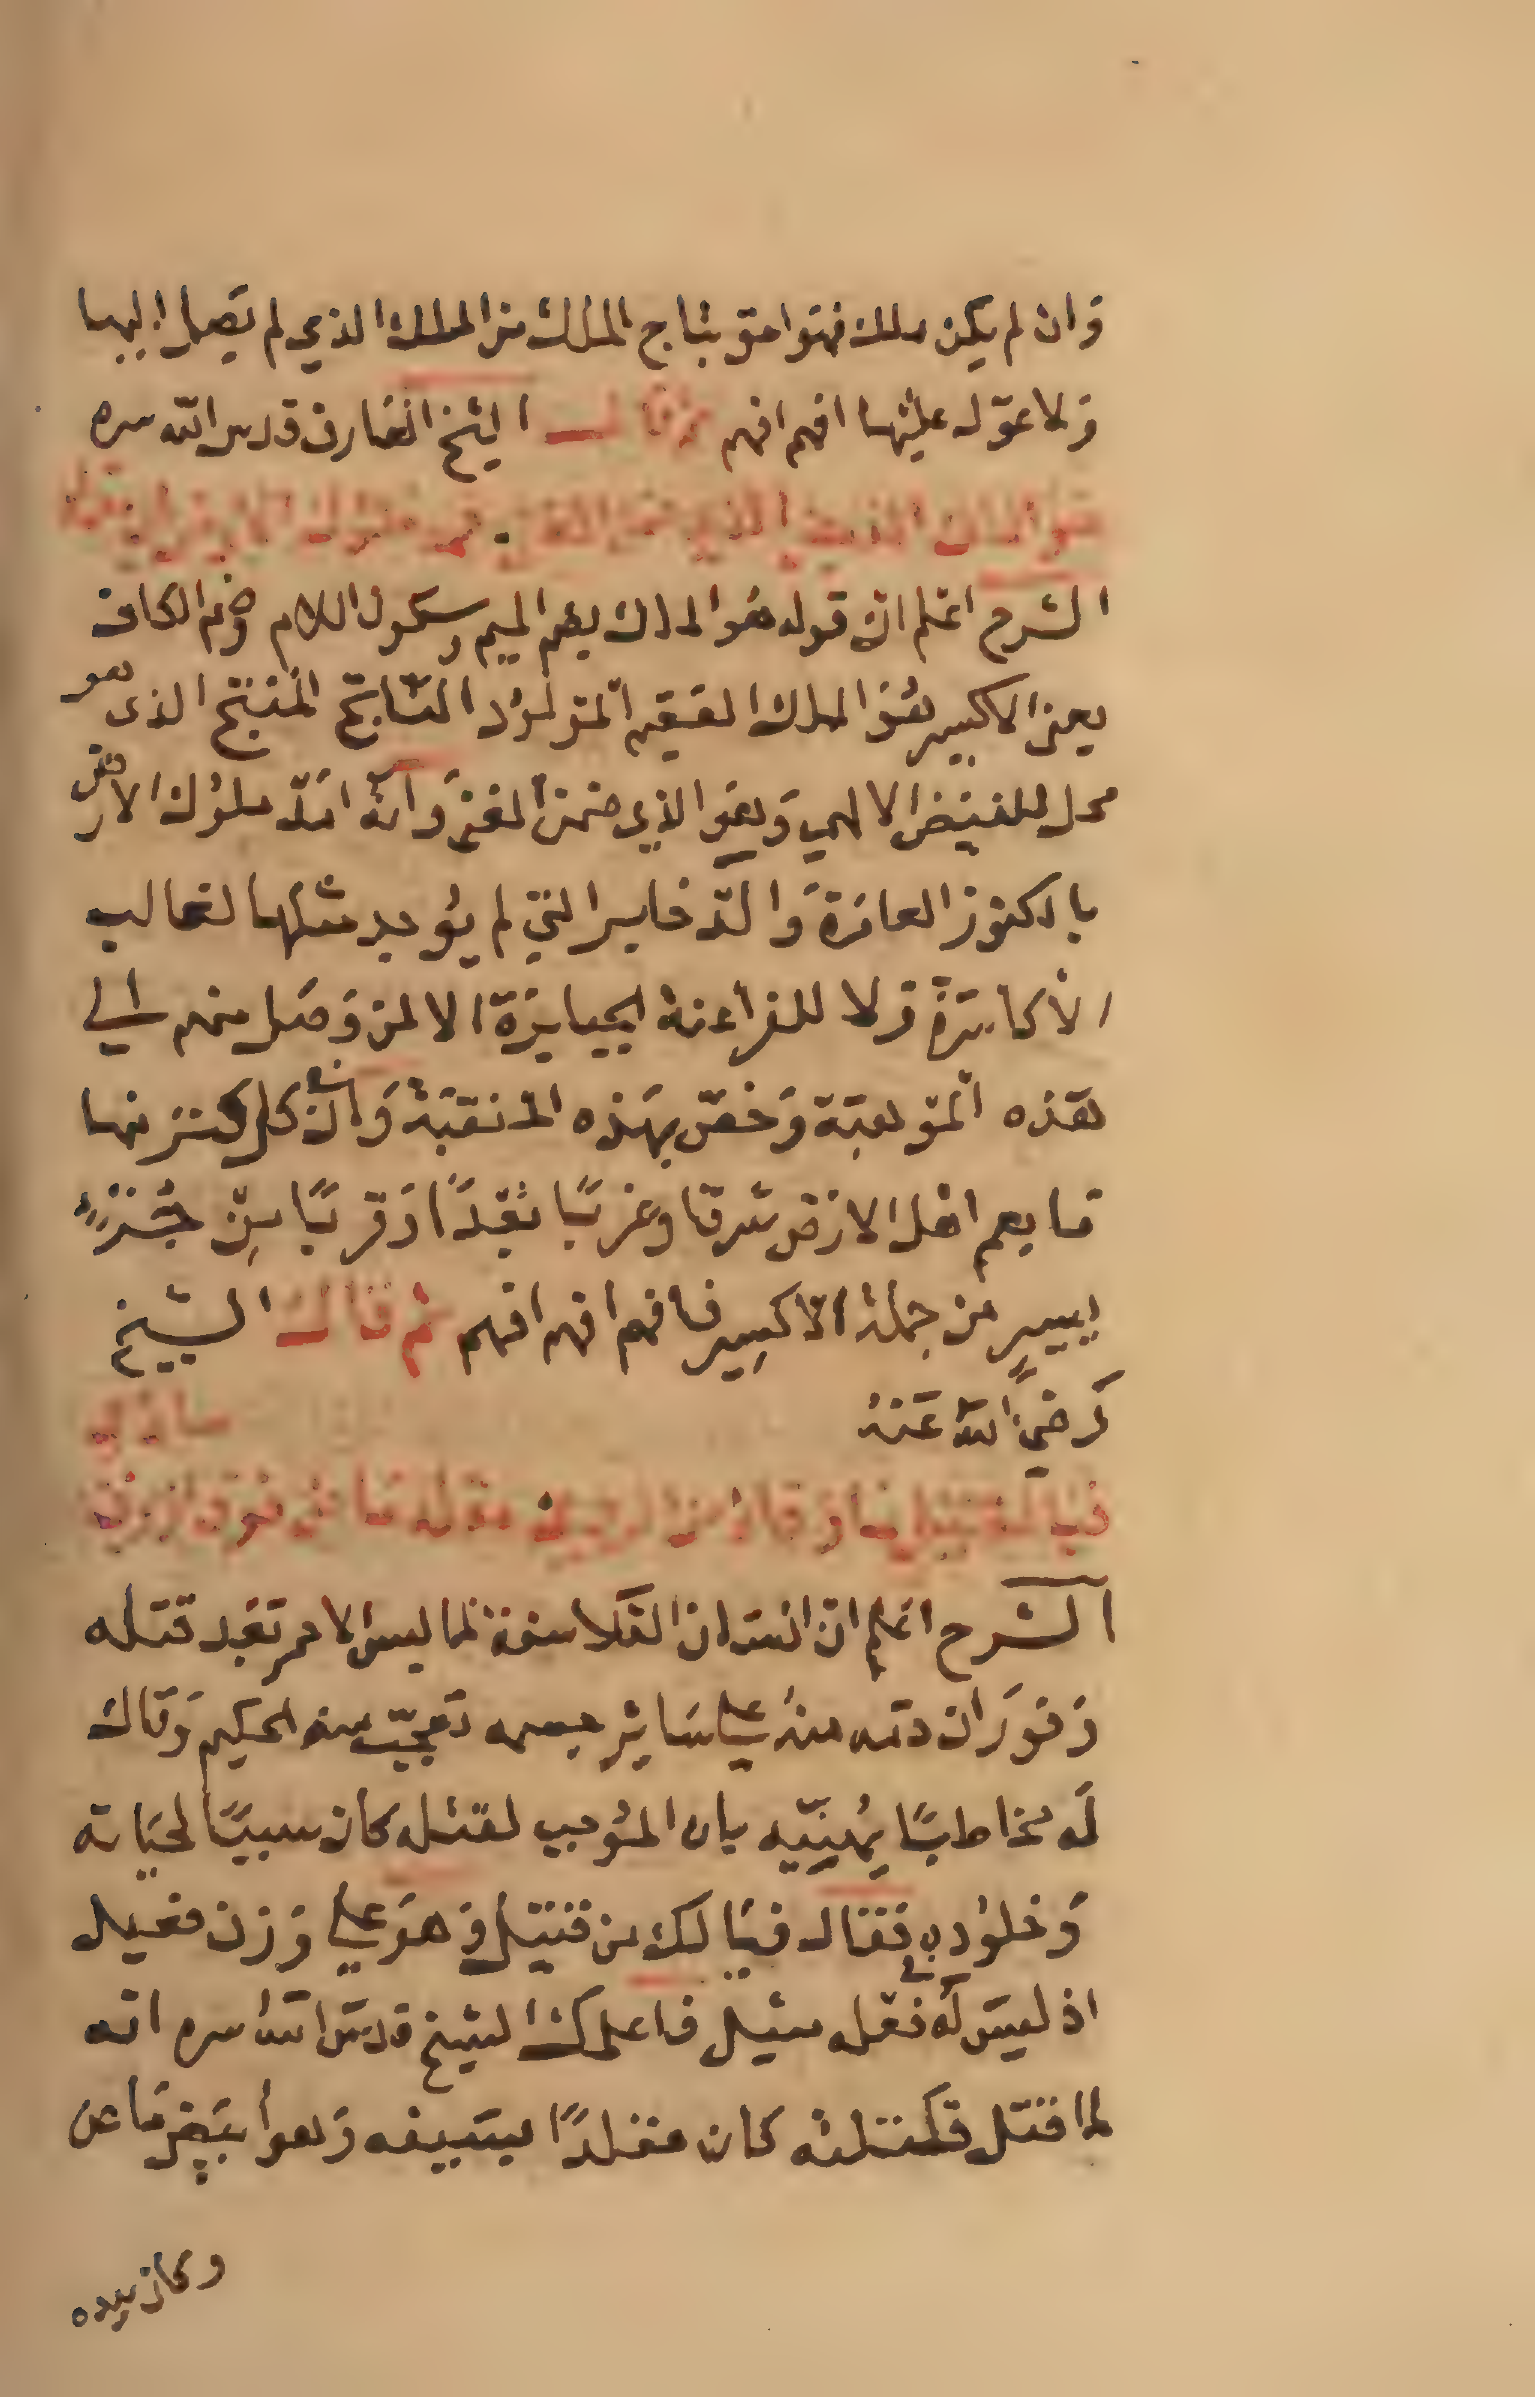 وان لم يكن ملك فهو احق بتاج الملك من الملك الذي لم يصل اليها
ولا عول عليها افهم افهم ثم قال الشيخ العارف قدس الله سره
هو الملك الذي ضمن الغنى
الشرح اعلم ان قوله هو الملك بضم الميم وسكون اللام وضم الكاف
يعنى الاكسير هو الملك العقيم المتولود الناتج المنتج الذى هو
محل للفيض الالهي وهو الذي ضمن الغنى وانه امد ملوك الارض
بالكنوز العامرة والذخاير التي لم يوجد مثلها لغالب
الاكاسرة ولا للفراعنة الجبابرة الا لمن وصل منهم الى
هذه الموهبة وخص بهذه المنقبة وان كل كنز منها
ما يعم اهل الارض شرقا وغربًا بعدًا وقربًا من جزءٍ
يسيرٍ من جملة الاكسير فافهم افهم افهم ثم قال الشيخ
رضي الله عنه
فيا لك من قتيل
الشرح اعلم ان انسان الفلاسفة لما لبس الاحمر بعد قتله
وفوران دمه منه على سائر جسمه تعجب منه الحكيم وقال
له مخاطبًا يهنيه بان الموجب لقتله كان سببًا لحياته
وخلوده فقال فيا لك من قتيل وهو على وزن فعيل
اذ ليس له فعله مثيل فاعلمك الشيخ قدس الله سره انه
لما قتل قتلته كان مقلدًا بسيفه وهو ابيض ما عن
وكان بيده